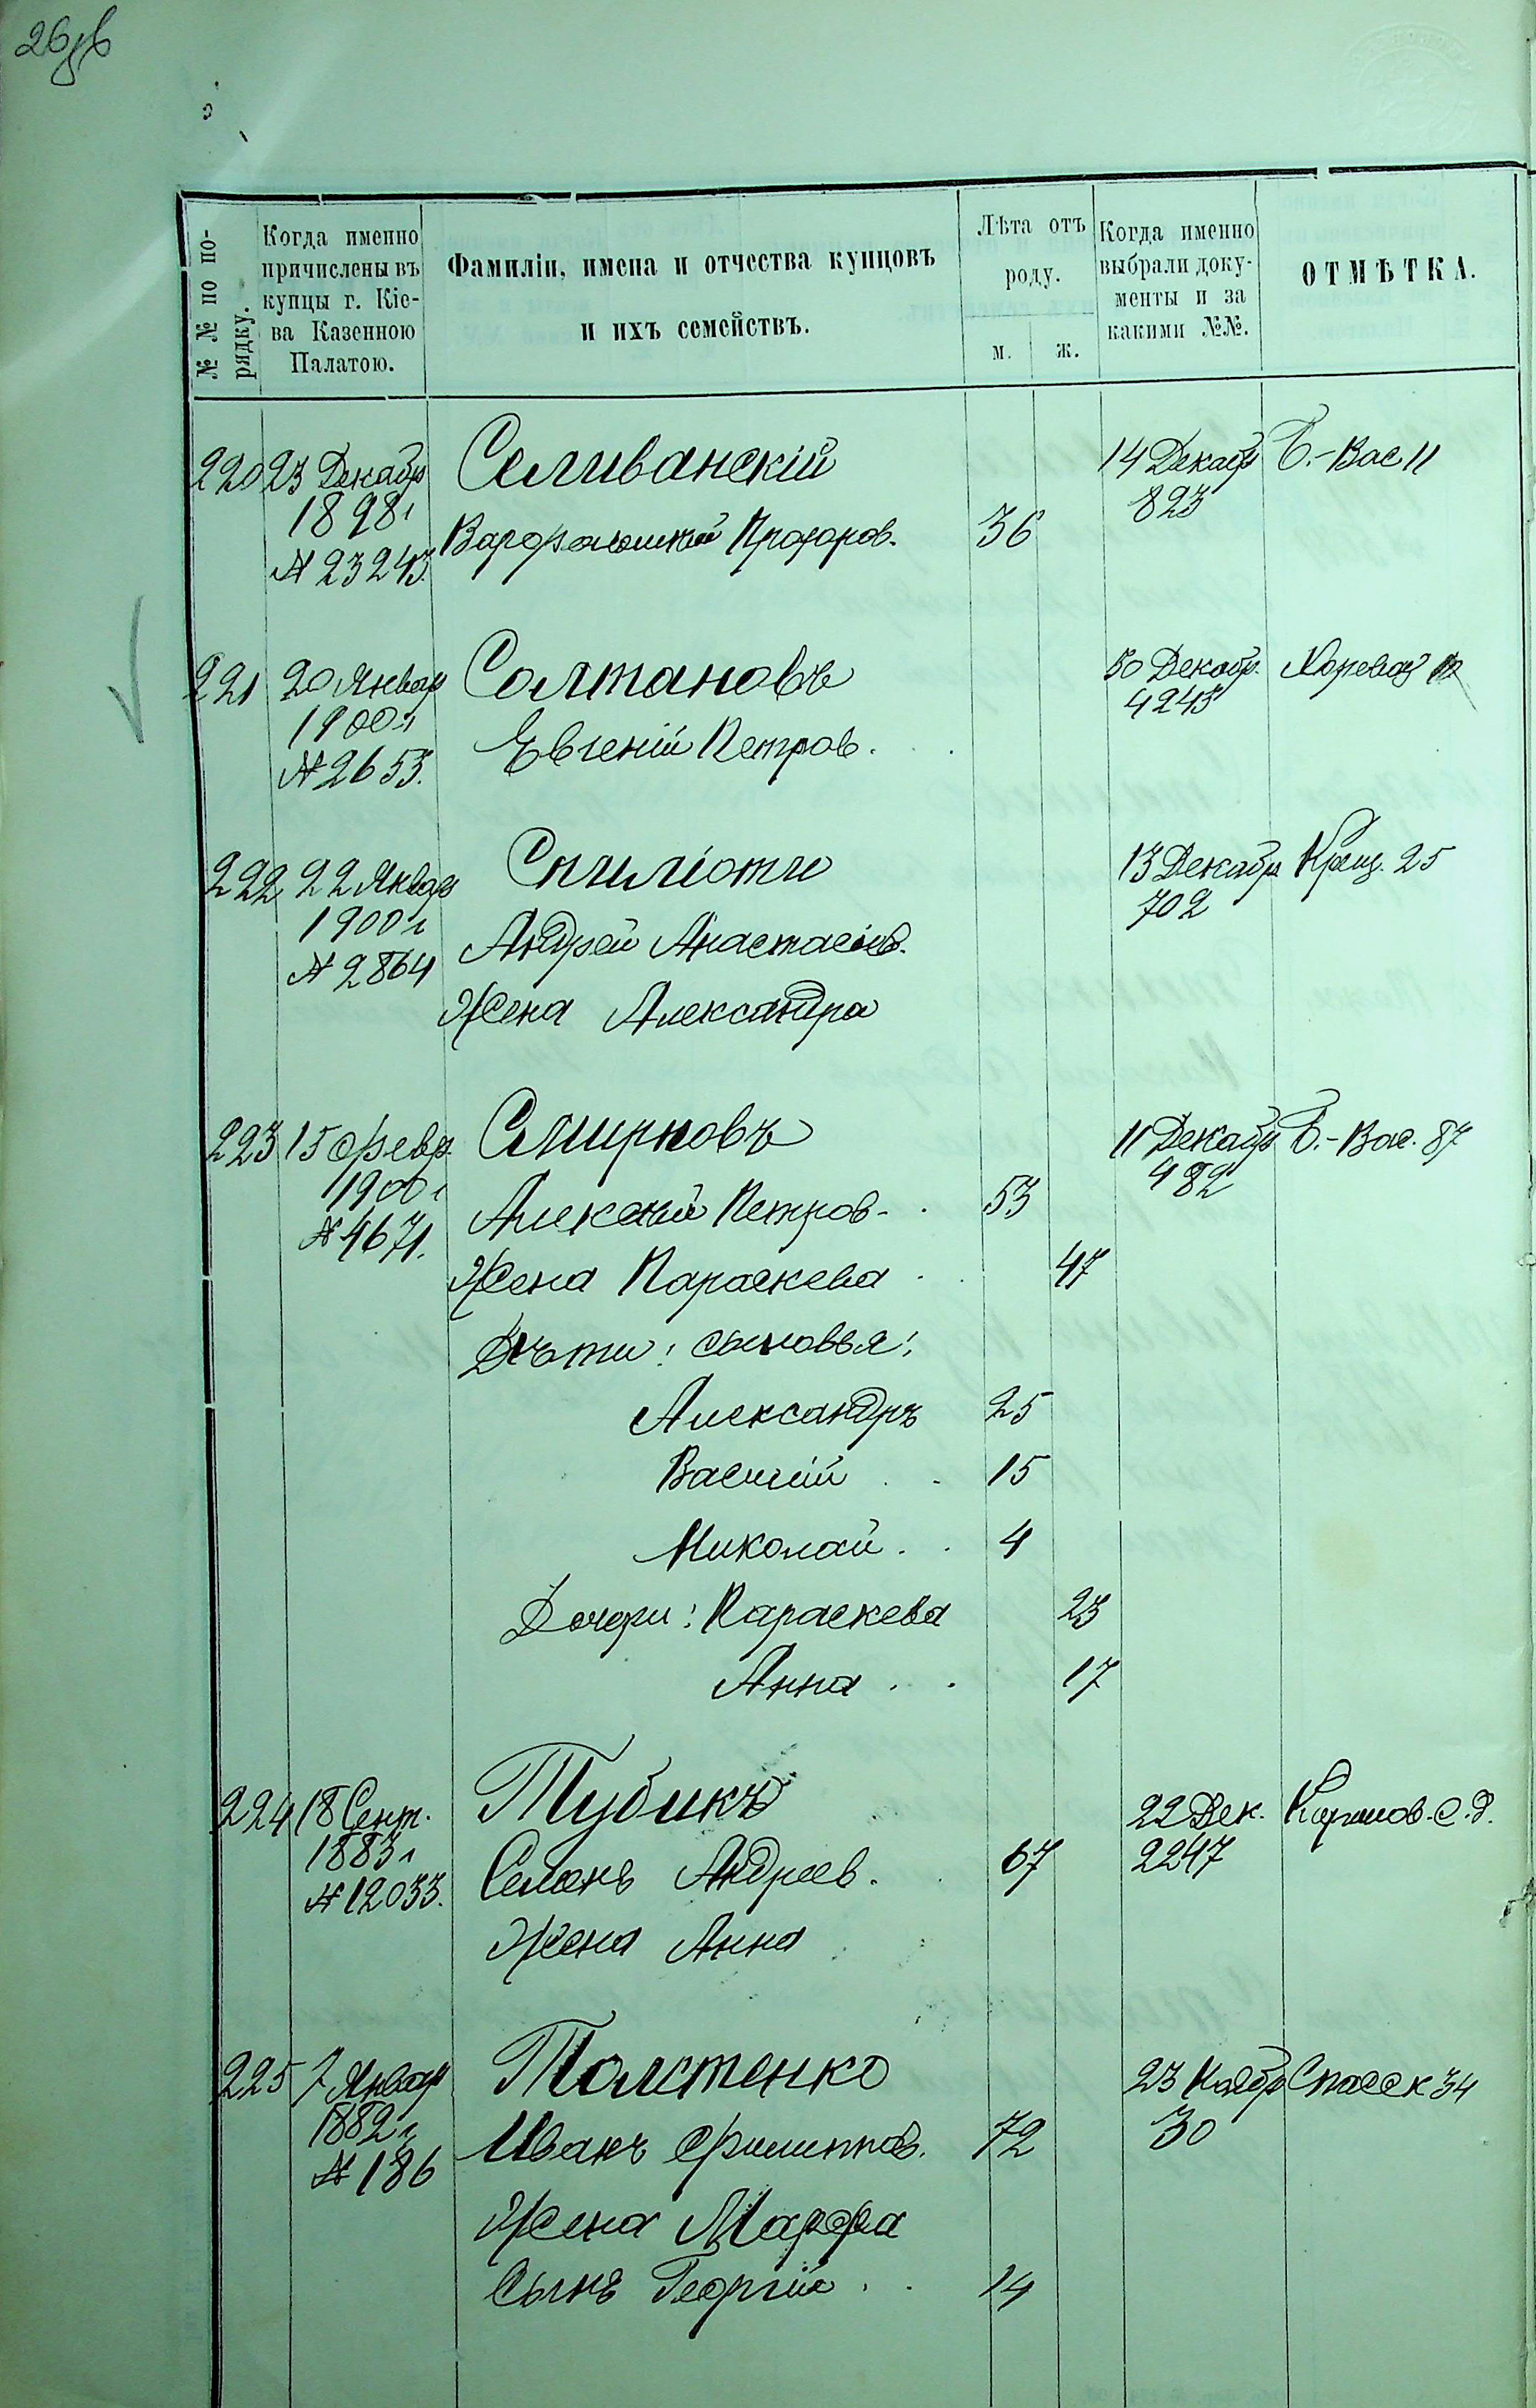 26 зв
№ № по по-
рядку.
Когда именно
причислены въ
купцы г. Кіе-
ва Казенною
Палатою.
Фамиліи, имена и отчества купцовъ
и ихъ семействъ.
Лѣта отъ
роду.
м. ж.
Когда именно
выбрали доку-
менты и за
какими №№.
ОТМѢТКА.
220 23 Декабр Селиванскій 14 Декабр Б.-Вас 11
1898 г 823
№ 23243. Варфоломей Прохоров. 36
221 20 Январ Солтановъ 30 Декабр.
1900 г 4243
№ 2653. Евгеній Петров.
222 22 Январ Спиліоти 13 Декабр Крещ. 25
1900 г 702
№ 2864 Андрей Анастасіев.
Жена Александра
223 15 Февр. Смирновъ 11 Декабр Б.-Вас. 87
1900 г 482
№ 4671. Алексей Петров. 53
Жена Параскева 47
Дѣти: сыновья:
Александръ 25
Василій 15
Николай 4
Дочери: Параскева 23
Анна 17
224 18 Сент. Тубикъ 22 Дек.
1883 г 2247
№ 12033. Семенъ Андреев. 67
Жена Анна
225 7 Январ Толстенко 23 Ноябр Спасск 34
1882 г 30
№ 186 Иванъ Филиппов. 72
Жена Марфа
Сынъ Георгій 14